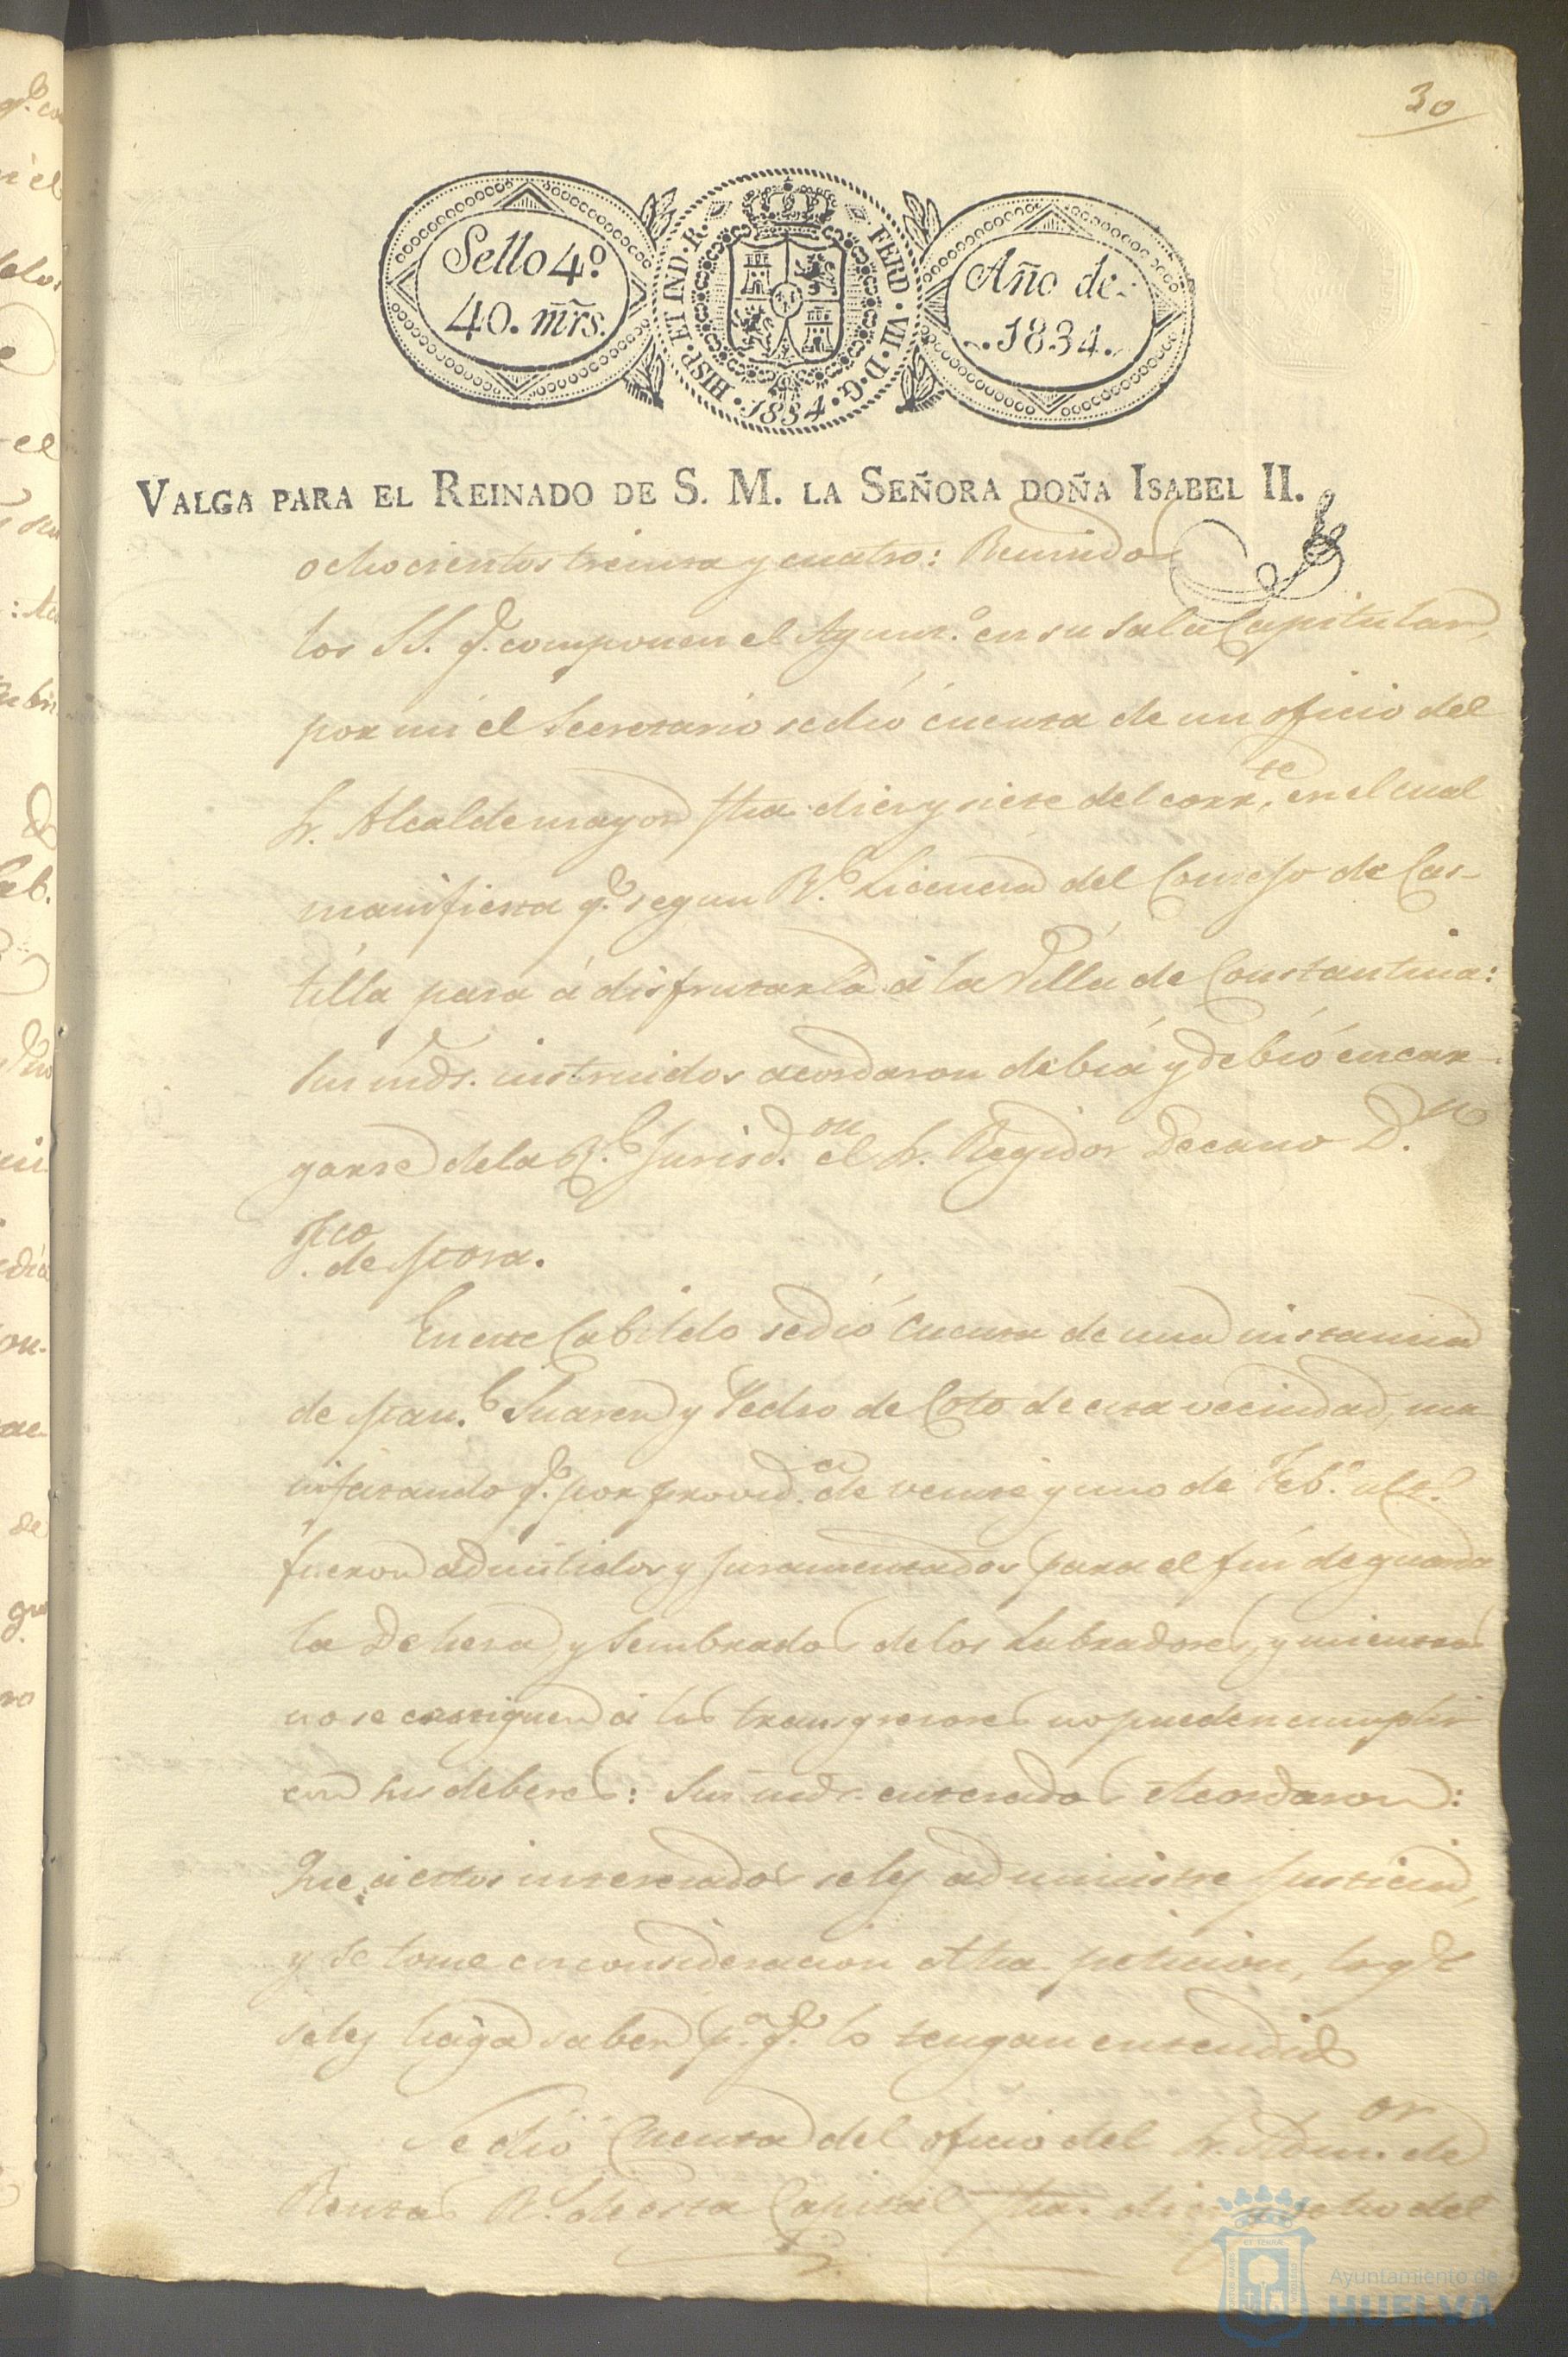 30
Sello 4º
40. mrs.
HISP. ET IND. R. FERD. VII. D. G. 1834.
Año de
1834.
VALGA PARA EL REINADO DE S. M. LA SEÑORA DOÑA ISABEL II.
ochocientos treinta y cuatro: Reunidos
los SS. q.e componen el Ayunt.º en su Sala Capitular,
por mi el Secretario se dió cuenta de un oficio del
Sr. Alcalde mayor fha. diez y siete del corr.te, en el cual
manifiesta q.e segun R.l Licencia del Consejo de Cas-
tilla pasa á disfrutarla á la Villa de Constantina:
Sus mds. instruidos acordaron debia y debió encar-
garse de la R.l Jurisd.on el Sr. Regidor Decano D.n
Fco. de Mora.
En este Cabildo se dió Cuenta de una instancia
de Man.l Suarez y Pedro de Coto de esta vecindad, ma-
nifestando q.e por provid.a de veinte y uno de Feb.º ult.º
fueron admitidos y juramentados para el fin de guardar
la Dehesa y Sembrados de los Labradores, y mientras
no se castiguen á los transgresores no pueden cumplir
con sus deberes: Sus mds. enterados Acordaron:
Que á estos interesados se les administre Justicia,
y se tome en consideracion dha. peticion, lo q.e
se les haga saber p.a q.e lo tengan entendido
Se dió Cuenta del oficio del Sr. Adm.or de
Rentas R.s de esta Capital fha. diez y ocho del
Ayuntamiento de
HUELVA